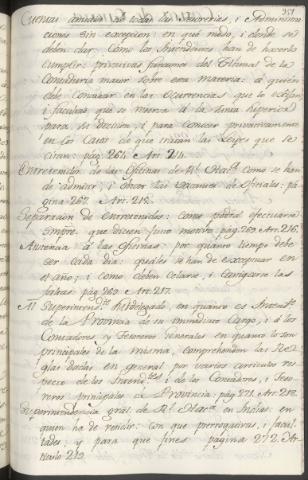 351
Cuentas anuales de todas las Tesorerias, i Administra
ciones sin excepcion; en qué modo, i donde se
deben dar. Como los Intendentes han de hacerlo
cumplir: privativas funciones del Tribunal de la
Contaduria mayor sobre esta materia: à quien
debe Consultar en las Ocurrencias que lo exijan,
i facultad que se reserva à la Junta Superior
para su decision; i para conocer privativamente
en los Casos de que tratan las Leyes que se
citan: pág. 264. Art. 214.
Entretenidos de las Oficinas de Rl. Haca. Como se han
de admitir, i obtar las vacantes de Oficiales: pá
gina 267. Art. 215.
Separacion de Entretenidos: como podrá efectuarse
siempre que tubiere justo motivo. pág. 269. Art. 216.
Asistencia à las Oficinas: por quanto tiempo debe
ser cada dia: quales se han de exceptuar en
el año; i como deben Celarse, i Castigarse las
faltas. pág. 269. Art. 217.
Al Superintendte. Subdelegado, en quanto es Intendte.
de la Provincia de su inmediato Cargo, i à los
Contadores, y Tesoreros Generales en quanto lo son
principales de la misma, comprehenden las Re-
glas dadas en general por varios articulos res-
pecto de los Intendtes. i de los Contadores, i Teso-
reros principales de Provincia: pág. 271. Art. 218.
Superintendencia gral. de Rl. Haca. en Indias: en
quien ha de residir: Con que prerrogativas, i facul-
tades; y para que fines. pagina 272. Ar-
ticulo 219.